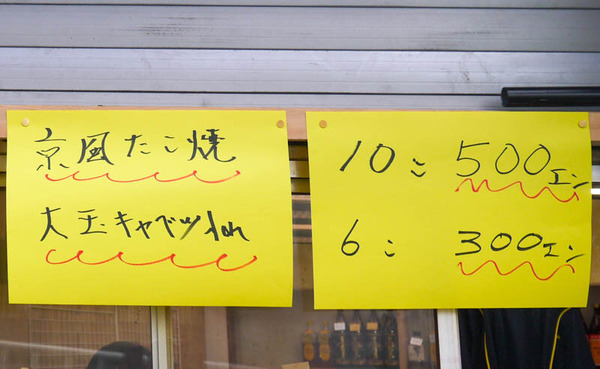 京風たこ焼
大玉キャベツ
10こ 500エン
6こ 300エン